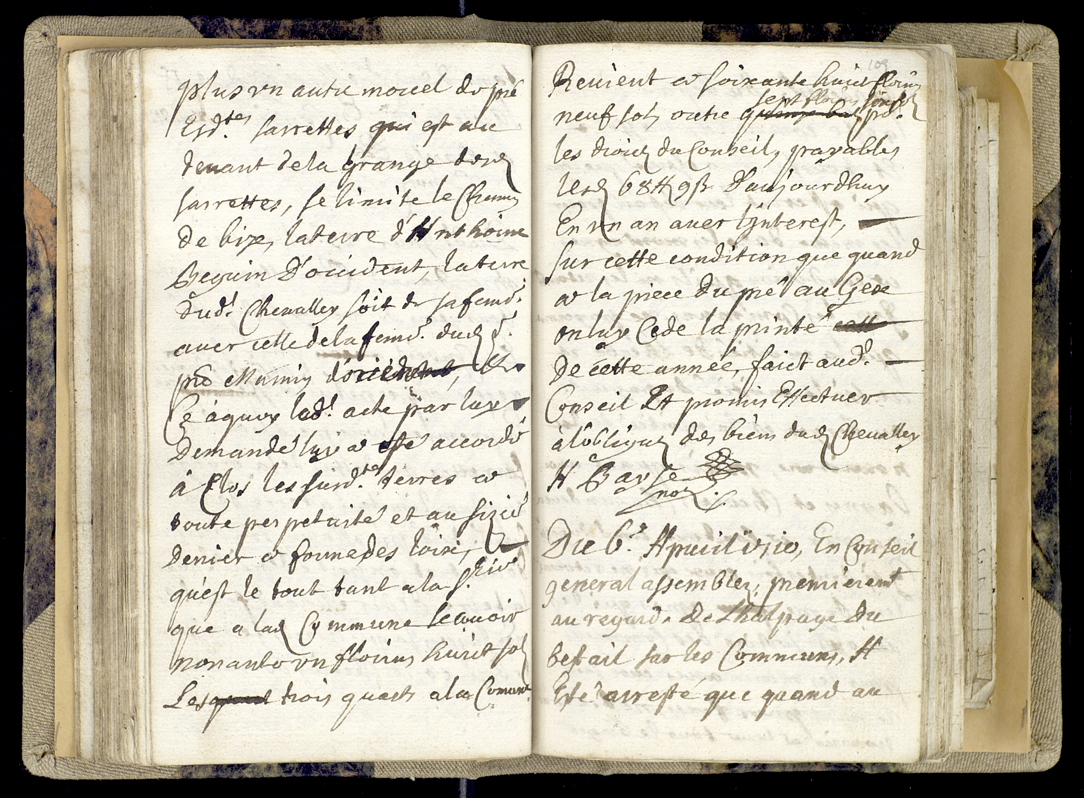 plus vn autre morcel de pré
Esd.tes sarrettes qui est au
devant de la grange desd
sarrettes, se limite le Chemin
de bize, la terre d'Anthoine
Beguin d'occident, la terre
dud. Chevalley soit de sa fem.e
avec celle de la fem.e dud
pré d'occident,
Ce à quoy lad. acte par luy
Demandé luy a esté accordé
à Clos les surd.tes terres a
toute perpetuité et au sizié
denier a forme des loix,
qu'est le tout tant a la S.rie
que a lad Commune scauoir
nonante vn florins huict sols
Les quart trois quarts a la Comune
109
Reuient a soixante huict florins
neuf sols outre sept florins six sols
quinze bz pd.
les droicts du Conseil, payables
lesd 68 ff 9 ß d'aujourdhuy
En vn an auec l'interest,
sur cette condition que quand
a la piece du pré au Gex
on luy Cede la printé cett
De cette année, faict aud.
Conseil Et promis Effectuer
à l'oblig des biens dud Chevalley
not.
Die 6.e Apuril 1710, En Conseil
general assemblez, premierem.t
au regard. De l'halpage du
bestail sur les Communs, A
Esté arresté que quand au